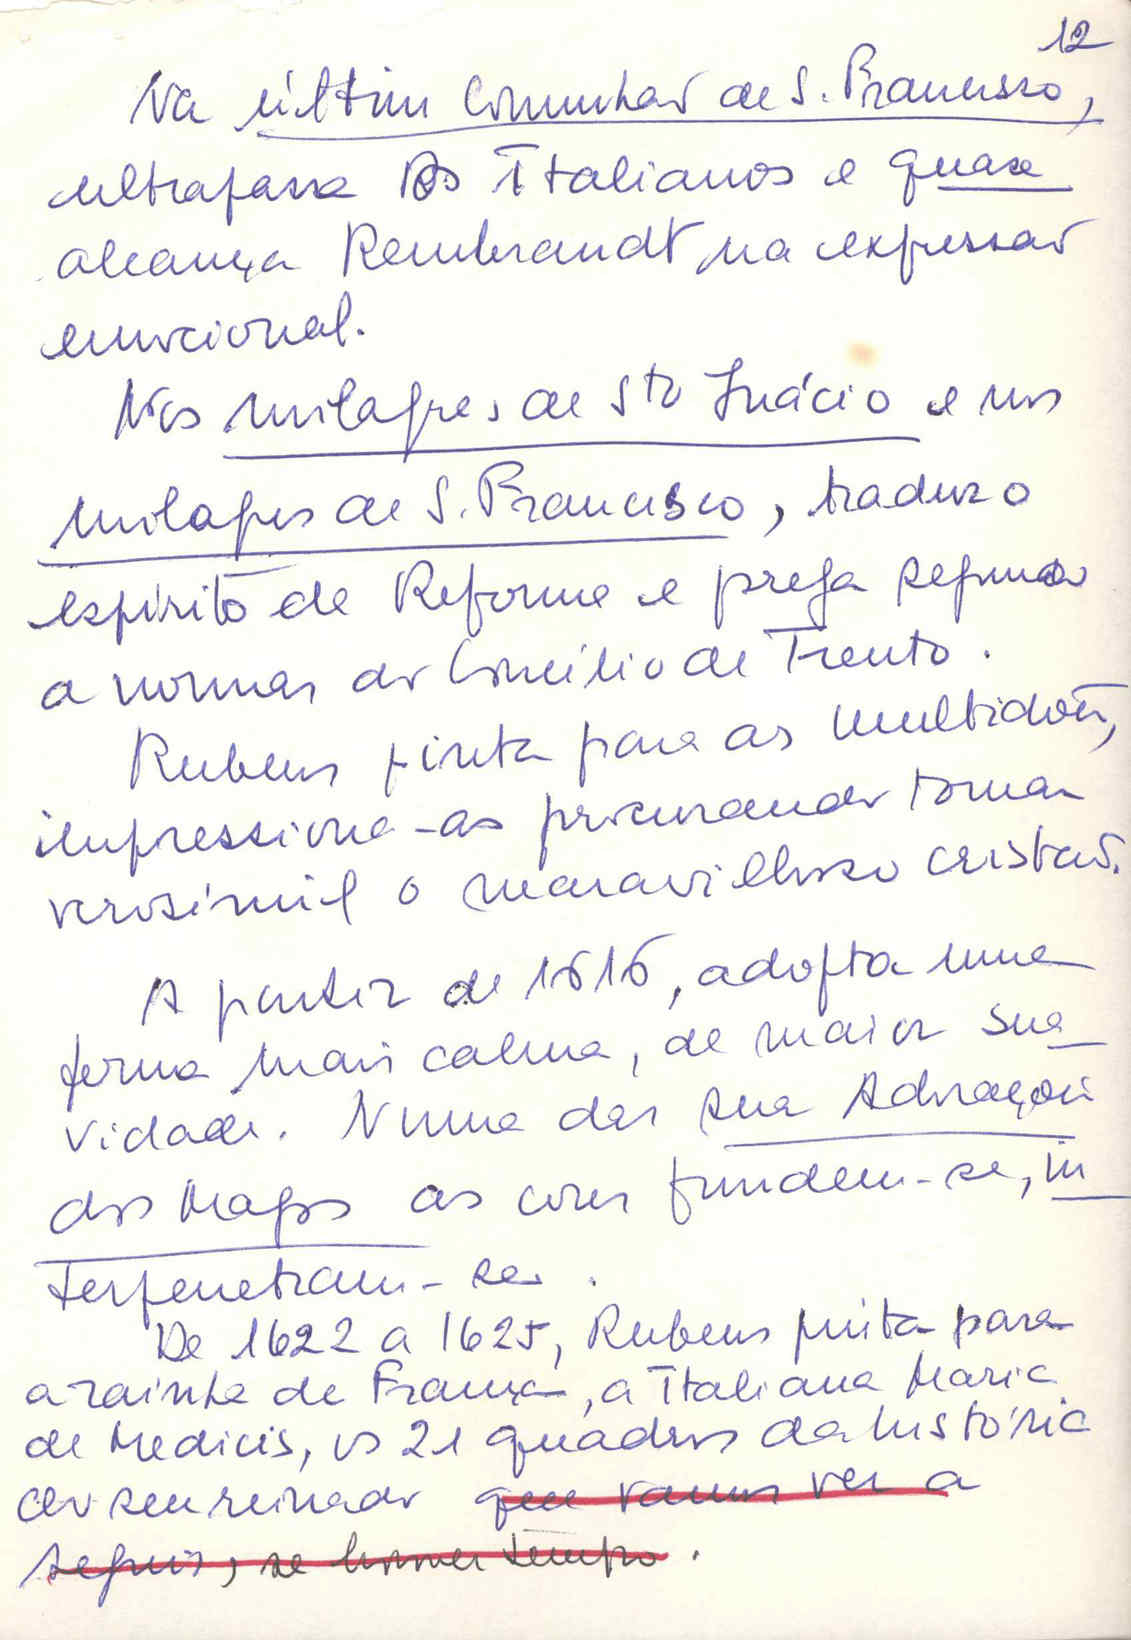 12
Na última Comunhão de S. Francisco,
ultrapassa os Italianos e quase
alcança Rembrandt na expressão
emocional.
Nos milagres de Sto Inácio e nos
milagres de S. Francisco, traduz o
espírito de Reforma e prega segundo
a normas do Concílio de Trento.
Rubens pinta para as multidões,
impressiona-as procurando tornar
verosímil o maravilhoso cristão.
A partir de 1616, adopta uma
forma mais calma, de maior sua
vidade. Numa das sua Adorações
dos Magos as cores fundem-se, in
terpenetram-se.
De 1622 a 1625, Rubens pinta para
a rainha de França, a Italiana Maria
de Medicis, os 21 quadros da história
do seu reinado que vamos ver a
seguir, se houver tempo.